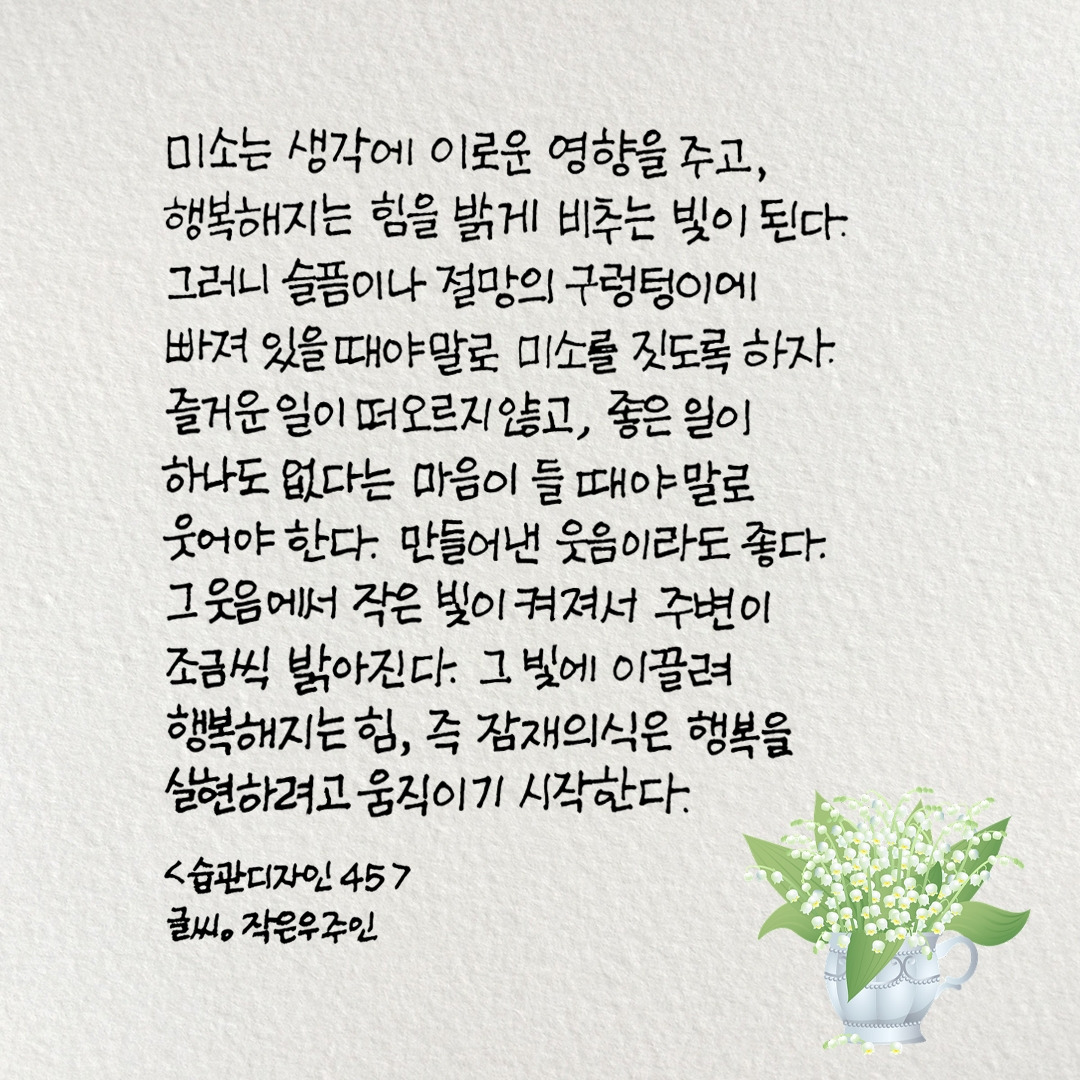 미소는 생각에 이로운 영향을 주고,
행복해지는 힘을 밝게 비추는 빛이 된다.
그러니 슬픔이나 절망의 구렁텅이에
빠져 있을 때야말로 미소를 짓도록 하자.
즐거운 일이 떠오르지 않고, 좋은 일이
하나도 없다는 마음이 들 때야말로
웃어야 한다. 만들어낸 웃음이라도 좋다.
그 웃음에서 작은 빛이 켜져서 주변이
조금씩 밝아진다. 그 빛에 이끌려
행복해지는 힘, 즉 잠재의식은 행복을
실현하려고 움직이기 시작한다.
<습관디자인 45>
글씨。작은우주인